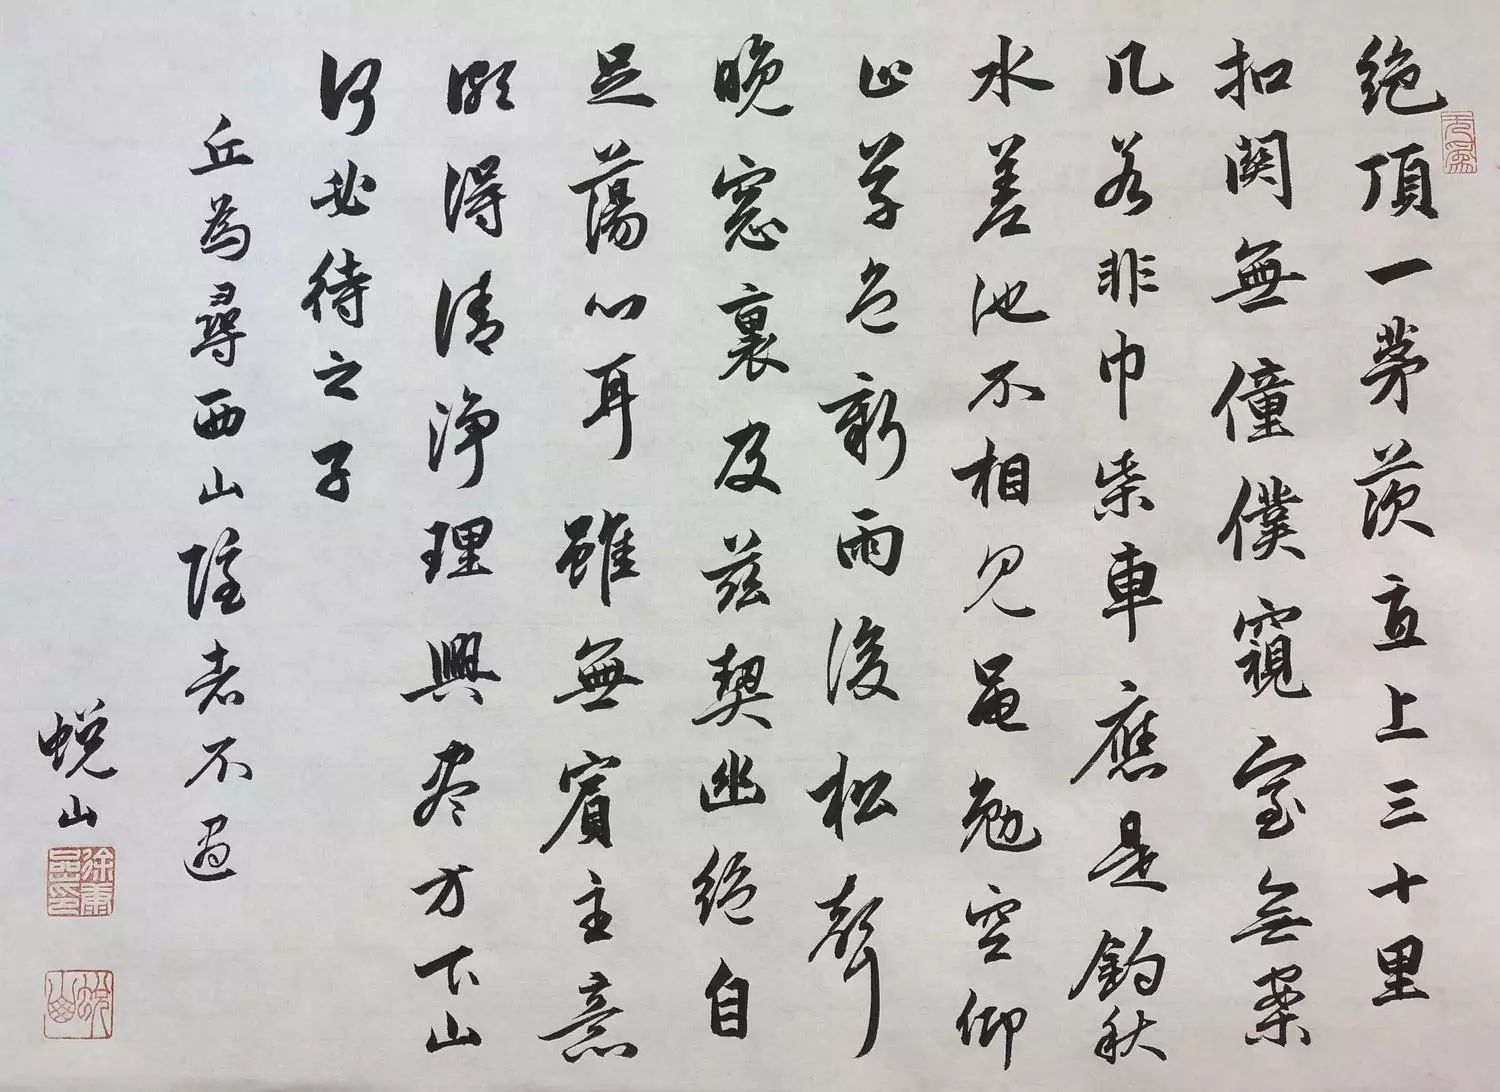 絶頂一茅茨直上三十里
扣関無僮僕窺室無案
几若非巾柴車應是釣秋
水差池不相見黽勉空仰
止草色新雨後松聲
晚窓裏及茲契幽絶自
足蕩心耳雖無賓主意
頗得清淨理興盡方下山
何必待之子
丘為尋西山隱者不遇
蜕山